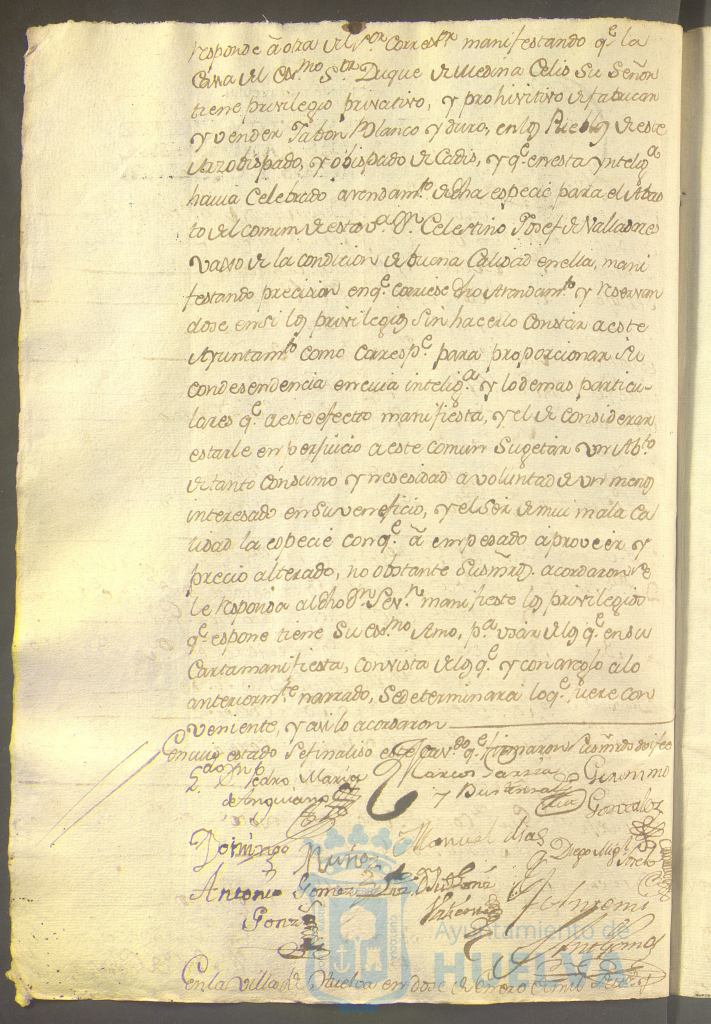 responde â otra del S.or Corres.r manifestando q.e la
Casa del Ex.mo S.or Duque de Medina Celis su Señor
tiene privilegio privativo, y prohivitivo de fabricar
y vender Jabon Blanco y duro, en los Pueblos de este
Arzobispado, y obispado de Cadis, y q.e en esta yntelig.a
havia Celebrado arrendam.to de dha especie para el Abas
to del comun de esta v.a D.n Celestino Josef de Valladares
vasso de la condicion de buena Calidad en ella, mani
festando precision en q.e corriese dho Arrendam.to y reservan
dose en si los privilegios sin hacerlo Constar a este
Ayuntam.to como corresp.e para proporcionar su
condesendencia en cuia intelig.a y lo demas particu-
lares q.e a este efecto manifiesta, y el de considerar
estarle en perjuicio a este comun sugetar un Ab.to
de tanto cónsumo y nesesidad a voluntad de un menos
interesado en su veneficio, y el Ser de mui mala Ca
lidad la especie con q.e â empesado a proveer y
precio alterado, no obstante sus mrds. acordaron se
le responda al dho D.n Sev.n manifieste los privilegios
q.e espone tiene su ex.mo Amo, p.a usar de los q.e en su
Carta manifiesta, con vista de los q.e y con arreglo a lo
anteriorm.te narrado, se determinará lo q.e fuere con
veniente, y asi lo acordaron
En cuio estado se finaliso este cav.do q.e firmaron sus mrds doi fee
Pedro Maria Marcos Garcia Guerrero
de Anquiano y Gonzalez
Domingo Nuñez Manuel dias Diego Mig.l
Antonio Gomez Antonio
Gonz
Ayuntamiento de
HUELVA
En la villa de Huelva en dose de Enero de mil